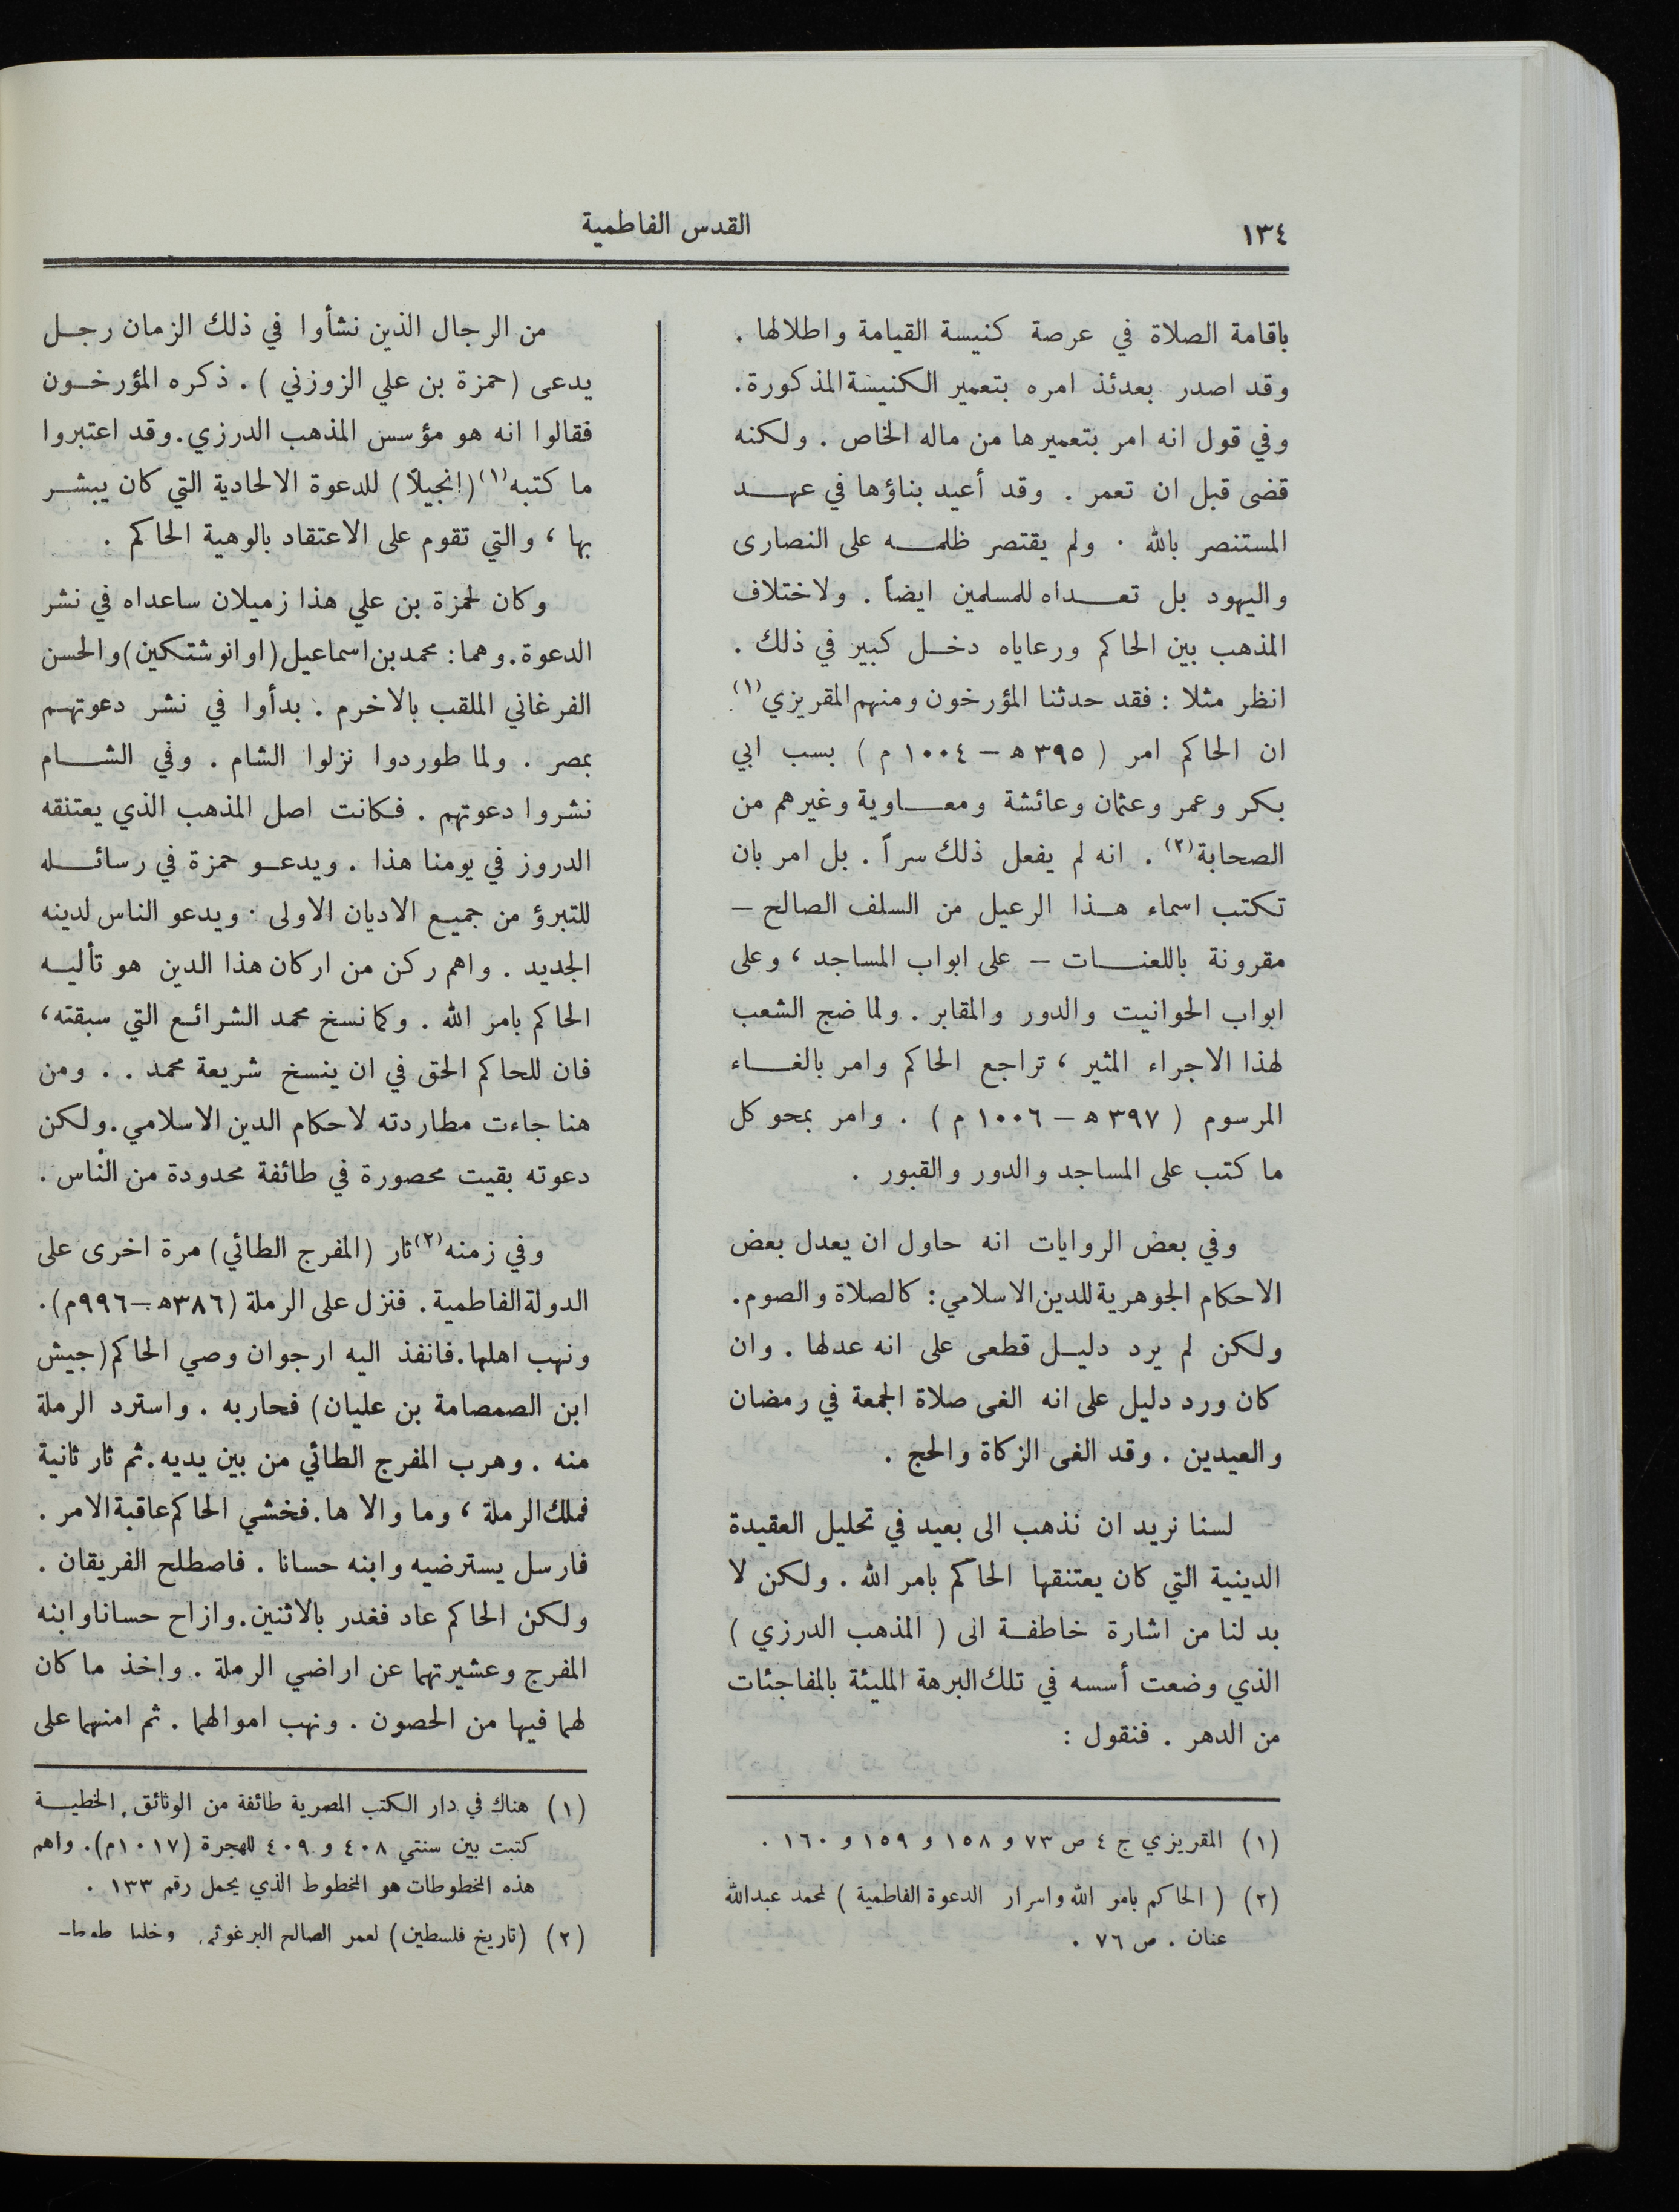 ١٣٤
القدس الفاطمية
باقامة الصلاة في عرصة كنيسة القيامة واطلالها .
وقد اصدر بعدئذ امره بتعمير الكنيسة المذكورة.
وفي قول انه امر بتعميرها من ماله الخاص . ولكنه
قضى قبل ان تعمر . وقد أعيد بناؤها في عهد
المستنصر بالله . ولم يقتصر ظلمه على النصارى
واليهود بل تعداه للمسلمين ايضاً . ولاختلاف
المذهب بين الحاكم ورعاياه دخل كبير في ذلك .
انظر مثلا : فقد حدثنا المؤرخون ومنهم المقريزي (١)
ان الحاكم امر ( ٣٩٥ ه – ١٠٠٤ م ) بسب ابي
بكر وعمر وعثمان وعائشة ومعاوية وغيرهم من
الصحابة (٢) . انه لم يفعل ذلك سراً . بل امر بان
تكتب اسماء هذا الرعيل من السلف الصالح –
مقرونة باللعنات – على ابواب المساجد ، وعلى
ابواب الحوانيت والدور والمقابر . ولما ضج الشعب
لهذا الاجراء المثير ، تراجع الحاكم وامر بالغاء
المرسوم ( ٣٩٧ ه – ١٠٠٦ م ) . وامر بمحو كل
ما كتب على المساجد والدور والقبور .
وفي بعض الروايات انه حاول ان يعدل بعض
الاحكام الجوهرية للدين الاسلامي : كالصلاة والصوم.
ولكن لم يرد دليل قطعى على انه عدلها . وان
كان ورد دليل على انه الغى صلاة الجمعة في رمضان
والعيدين . وقد الغى الزكاة والحج .
لسنا نريد ان نذهب الى بعيد في تحليل العقيدة
الدينية التي كان يعتنقها الحاكم بامر الله . ولكن لا
بد لنا من اشارة خاطفة الى ( المذهب الدرزي )
الذي وضعت أسسه في تلك البرهة المليئة بالمفاجئات
من الدهر . فنقول :
(١) المقريزي ج ٤ ص ٧٣ و ١٥٨ و ١٥٩ و ١٦٠ .
(٢) ( الحاكم بامر الله واسرار الدعوة الفاطمية ) لمحمد عبدالله
عنان . ص ٧٦ .
من الرجال الذين نشأوا في ذلك الزمان رجل
يدعى (حمزة بن علي الزوزني ) . ذكره المؤرخون
فقالوا انه هو مؤسس المذهب الدرزي. وقد اعتبروا
ما كتبه (١) (إنجيلاً) للدعوة الالحادية التي كان يبشر
بها ، والتي تقوم على الاعتقاد بالوهية الحاكم .
وكان لحمزة بن علي هذا زميلان ساعداه في نشر
الدعوة. وهما : محمد بن اسماعيل (او انوشتكين) والحسن
الفرغاني الملقب بالاخرم . بدأوا في نشر دعوتهم
بمصر . ولما طوردوا نزلوا الشام . وفي الشام
نشروا دعوتهم . فكانت اصل المذهب الذي يعتنقه
الدروز في يومنا هذا . ويدعو حمزة في رسائله
للتبرؤ من جميع الاديان الاولى . ويدعو الناس لدينه
الجديد . واهم ركن من اركان هذا الدين هو تأليه
الحاكم بامر الله . وكما نسخ محمد الشرائع التي سبقته ،
فان للحاكم الحق في ان ينسخ شريعة محمد . . ومن
هنا جاءت مطاردته لاحكام الدين الاسلامي. ولكن
دعوته بقيت محصورة في طائفة محدودة من الناس .
وفي زمنه (٢) ثار (المفرج الطائي) مرة اخرى على
الدولة الفاطمية . فنزل على الرملة (٣٨٦ه – ٩٩٦م) .
ونهب اهلها. فانفذ اليه ارجوان وصي الحاكم (جيش
ابن الصمصامة بن عليان) فحاربه . واسترد الرملة
منه . وهرب المفرج الطائي من بين يديه. ثم ثار ثانية
فملك الرملة ، وما والاها. فخشي الحاكم عاقبة الامر .
فارسل يسترضيه وابنه حسانا . فاصطلح الفريقان .
ولكن الحاكم عاد فغدر بالاثنين. وازاح حسانا وابنه
المفرج وعشيرتهما عن اراضي الرملة . واخذ ما كان
لهما فيها من الحصون . ونهب اموالهما . ثم امنهما على
(١) هناك في دار الكتب المصرية طائفة من الوثائق الخطية
كتبت بين سنتي ٤٠٨ و ٤٠٩ للهجرة (١٠١٧م). واهم
هذه المخطوطات هو المخطوط الذي يحمل رقم ١٣٣ .
(٢) (تاريخ فلسطين) لعمر الصالح البرغوثي وخليل